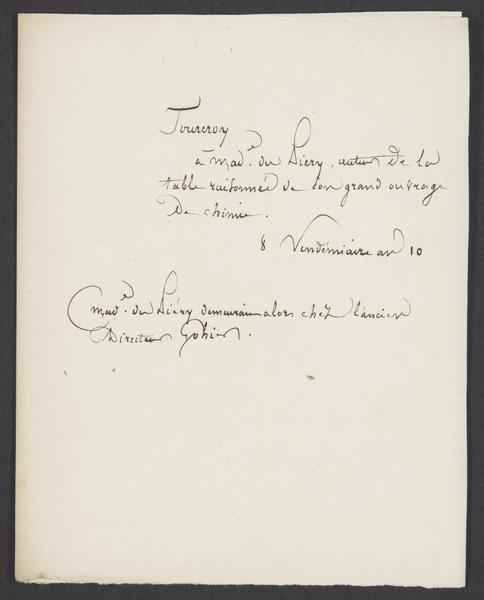 Fourcroy
à Mad.e du Piery, auteur de la
table raisonnée de son grand ouvrage
De chimie.
8 Vendémiaire an 10
Mad.e du Piéry demeurait alors chéz l'ancien
Directeur Gohier.